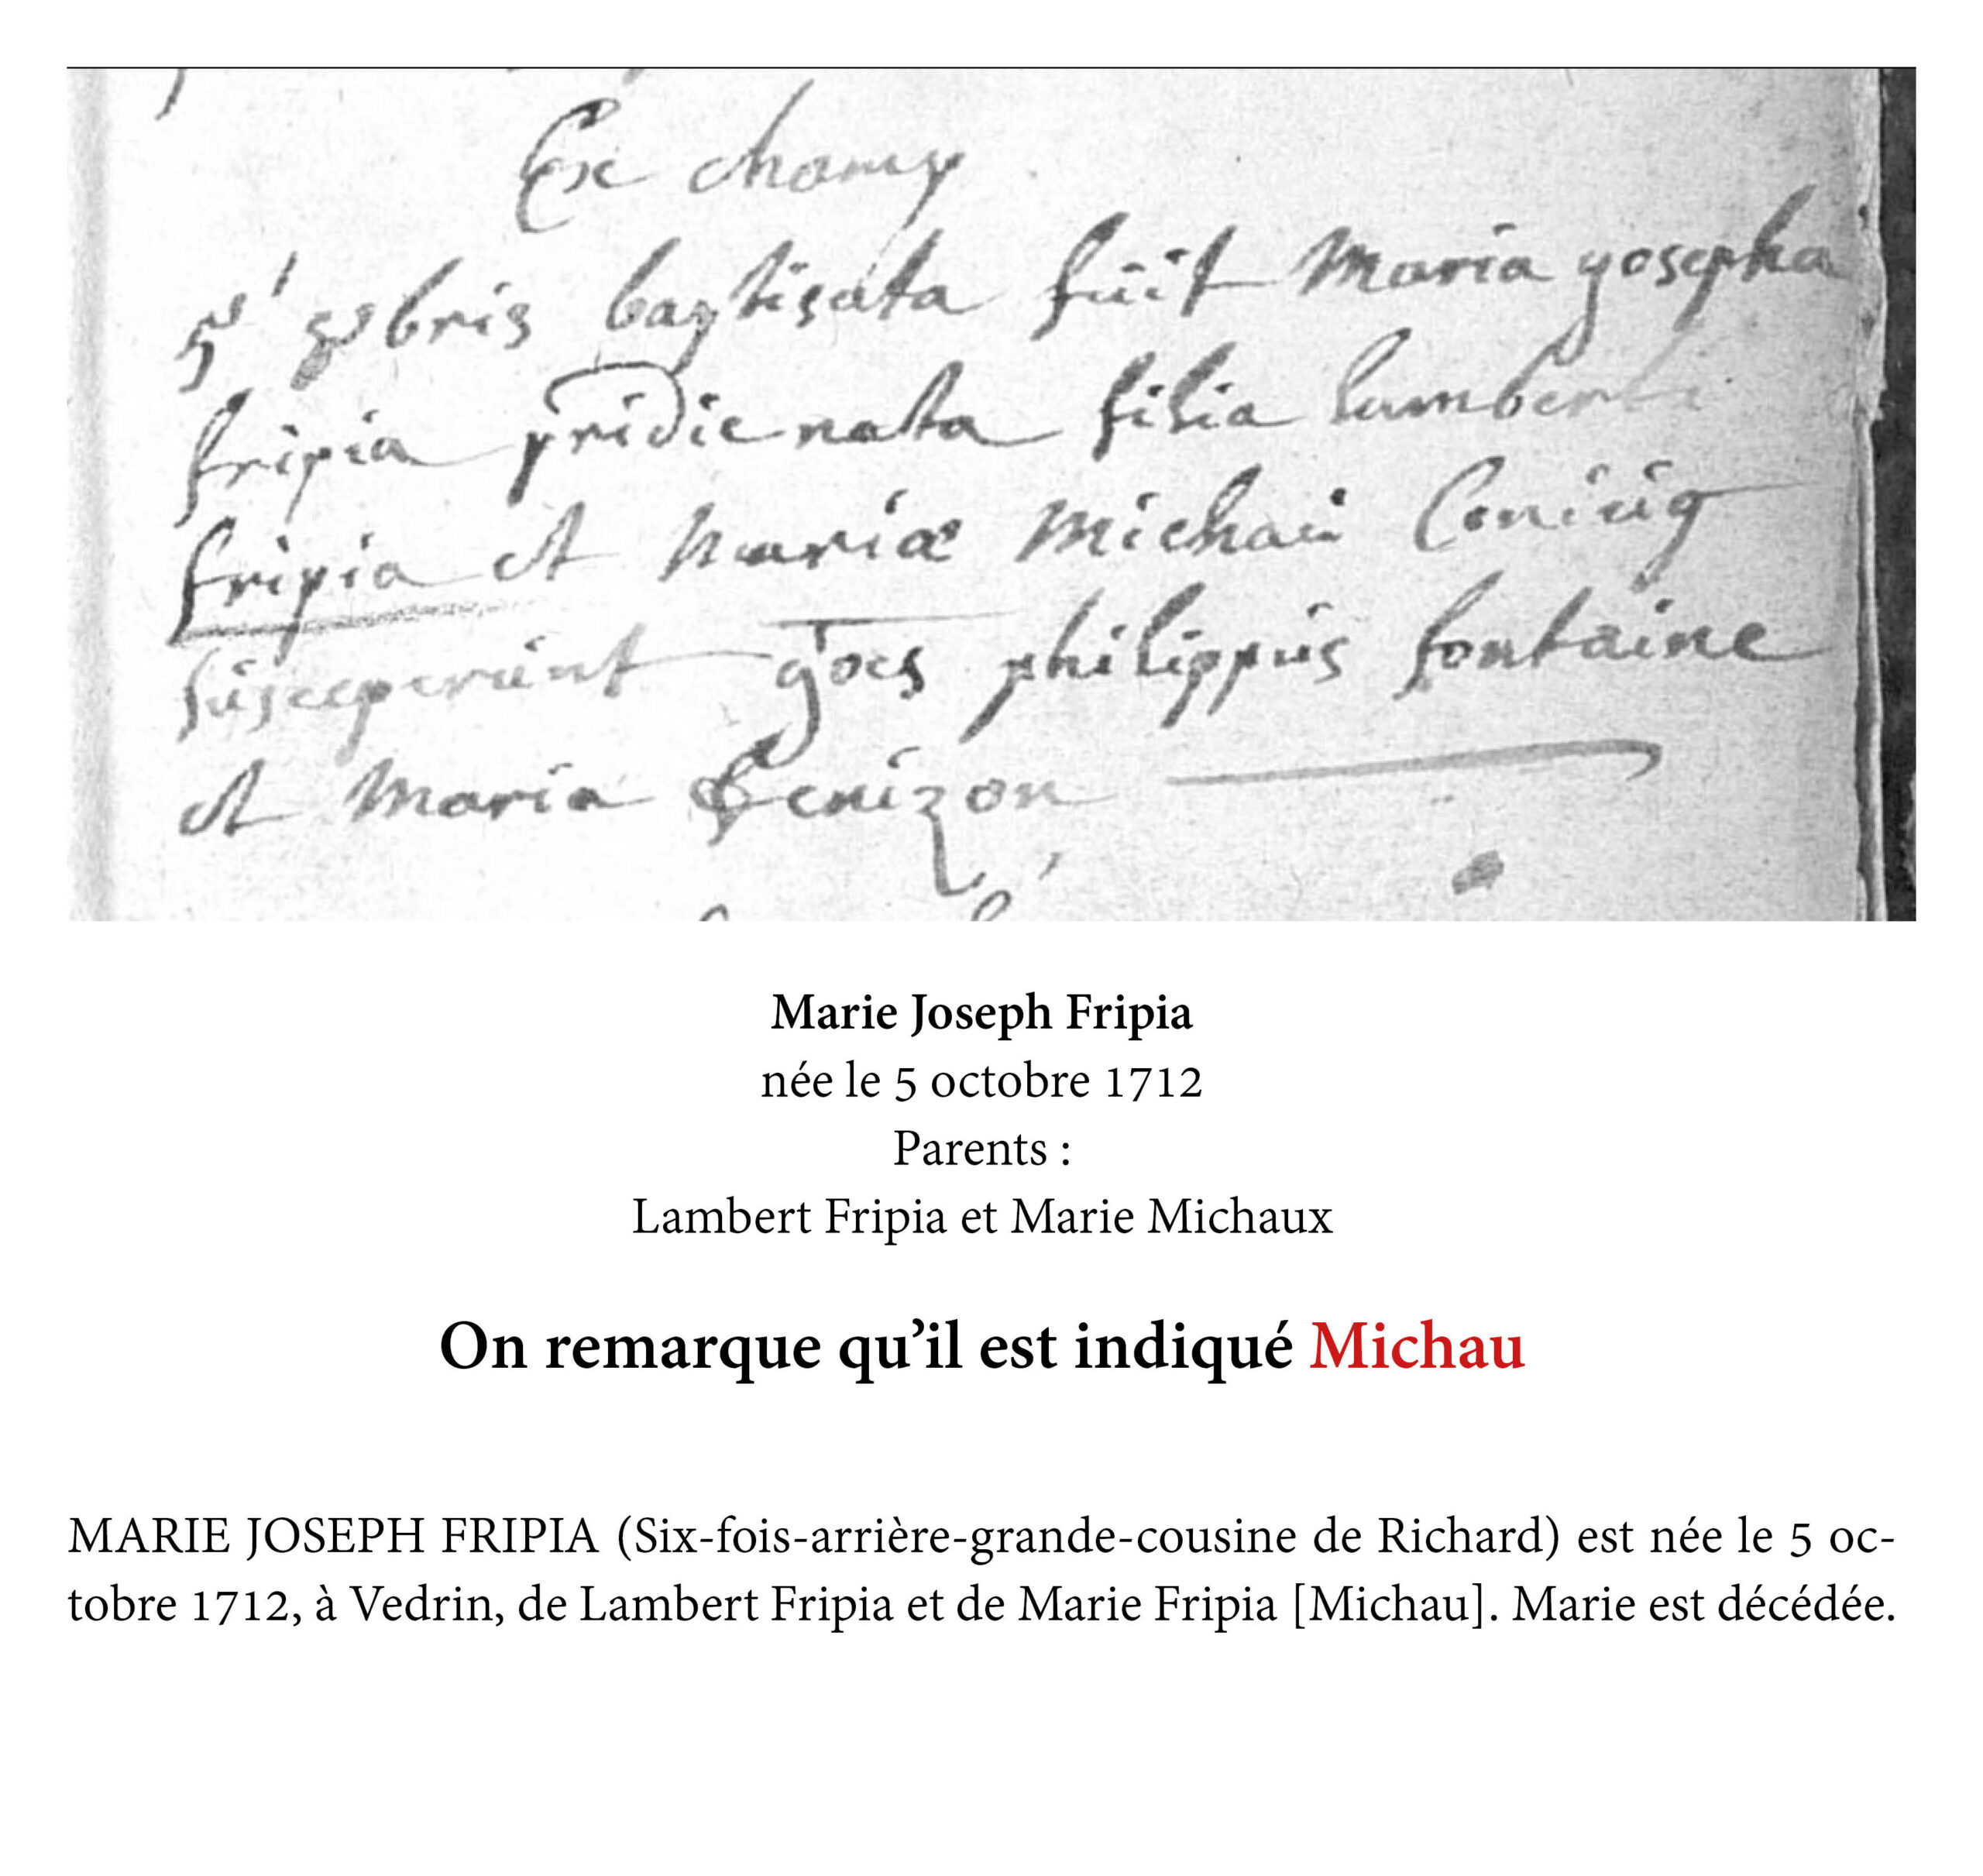 Ex
5' bris baptisata fuit Maria yosepha
fripia pridie nata filia lamberti
fripia et Mariæ Michau Coniug
susceperunt philippus fontaine
et Maria
Marie Joseph Fripia
née le 5 octobre 1712
Parents :
Lambert Fripia et Marie Michaux
On remarque qu’il est indiqué Michau
MARIE JOSEPH FRIPIA (Six-fois-arrière-grande-cousine de Richard) est née le 5 oc-
tobre 1712, à Vedrin, de Lambert Fripia et de Marie Fripia [Michau]. Marie est décédée.